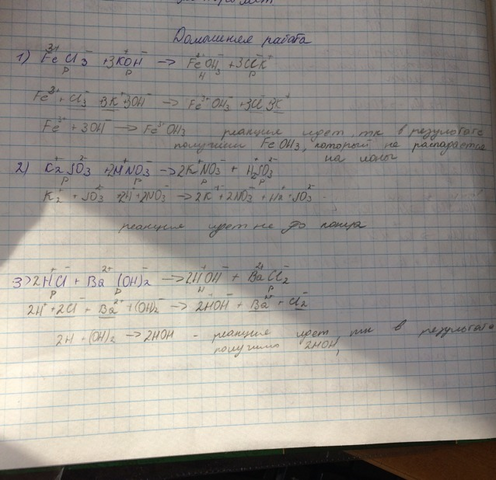 Домашняя работа
1) Fe³⁺Cl₃⁻ + 3K⁺OH⁻ → FeOH₃ + 3ClK
Р Р Н Р
Fe³⁺ + Cl₃⁻ 3K⁺ 3OH⁻ → Fe³⁺OH₃ + 3Cl⁻ 3K⁺
Fe³⁺ + 3OH⁻ → Fe³⁺OH₃ реакция идет, т.к в результате
получили FeOH₃, который не распадается
на ионы
2) K₂⁺SO₃²⁻ 2H⁺NO₃⁻ → 2K⁺NO₃⁻ + H₂⁺SO₃²⁻
Р Р Р Р
K₂⁺ + SO₃²⁻ 2H⁺ + 2NO₃⁻ → 2K⁺ + 2NO₃ + H₂⁺ + SO₃²⁻
реакция идет не до конца
3) 2H⁺Cl⁻ + Ba²⁺(OH)₂⁻ → 2H⁺OH⁻ + Ba²⁺Cl₂⁻
Р Р Н Р
2H⁺ + 2Cl⁻ + Ba²⁺ + (OH)₂⁻ → 2HOH + Ba²⁺ + Cl₂⁻
2H + (OH)₂ → 2HOH - реакция идет, т.к в результате
получили 2HOH,